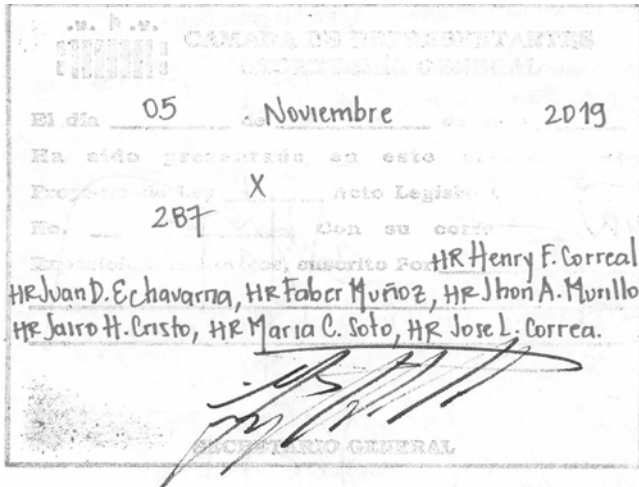 CAMARA DE REPRESENTANTES
SECRETARÍA GENERAL
El día 05 de Noviembre de 2019
Ha sido presentado en este
Proyecto de Ley X Acto Legisla
No. 287 Con su
suscrito Por HR Henry F. Correal
HR Juan D. Echavarria, HR Faber Muñoz, HR Jhon A. Murillo
HR Jairo H. Cristo, HR Maria C. Soto, HR Jose L. Correa.
SECRETARIO GENERAL